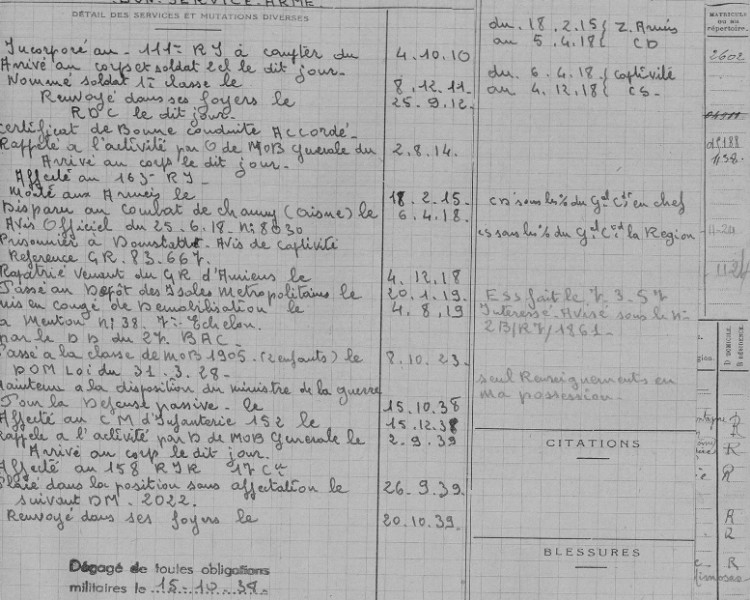 BON. SERVICE. ARMÉ.
DÉTAIL DES SERVICES ET MUTATIONS DIVERSES
Incorporé au - 111e R I à compter du 4.10.10
Arrivé au corps et soldat 2cl le dit jour.
Nommé soldat 1e classe le 8.12.11.
Renvoyé dans ses foyers le 25.9.12.
RDC le dit jour.
Certificat de Bonne conduite Accordé.
Rappelé a l'activité par O de MOB Generale du 2.8.14.
Arrivé au corps le dit jour.
Affecté au 163e R I
aux Armées le 18.2.15.
Disparu au combat de chauny (aisne) le 6.4.18.
Avis Officiel du 25.6.18. N: 8030
Prisonnier à . Avis de captivité
Reference G R. 83.667.
Rapatrié venant du G R d'Amiens le 4.12.18
Passé au Dépôt des Isolés Metropolitains le 20.1.19.
mis en congé de Demobilisation le 4.8.19
a Menton N: 38. 7e Echelon.
par le D D du 27 BAC.
Passé a la classe de MOB 1905. (2 enfants) le 8.10.23.
DOM Loi du 31.3.28.
Maintenu a la disposition du ministre de la guerre
Pour la Defense passive. le 15.10.38
Affecté au C M d'Infanterie 152 le 15.12.38
Rappelé a l'activité par O de MOB Generale le 2.9.39
Arrivé au corps le dit jour.
Affecté au 158 R I R 17 Cie
Placé dans la position sans affectation le 26.9.39.
suivant DM. 2022.
Renvoyé dans ses foyers le 20.10.39.
Dégagé de toutes obligations
militaires le 15-10-39.
du 18.2.15 } Z. Armées
au 5.4.18 } CD
du 6.4.18 } captivité
au 4.12.18 } CS.
CD sous les % du Gal Ct en chef
CS sous les % du Gal Ct la Region
ESS fait le 7.3.57
Interessé Avisé sous le N:
2B/RJ/1861.
seul Renseignements en
ma possession.
CITATIONS
BLESSURES
MATRICULE
répertoire.
2602
R
R
R
R
R
R